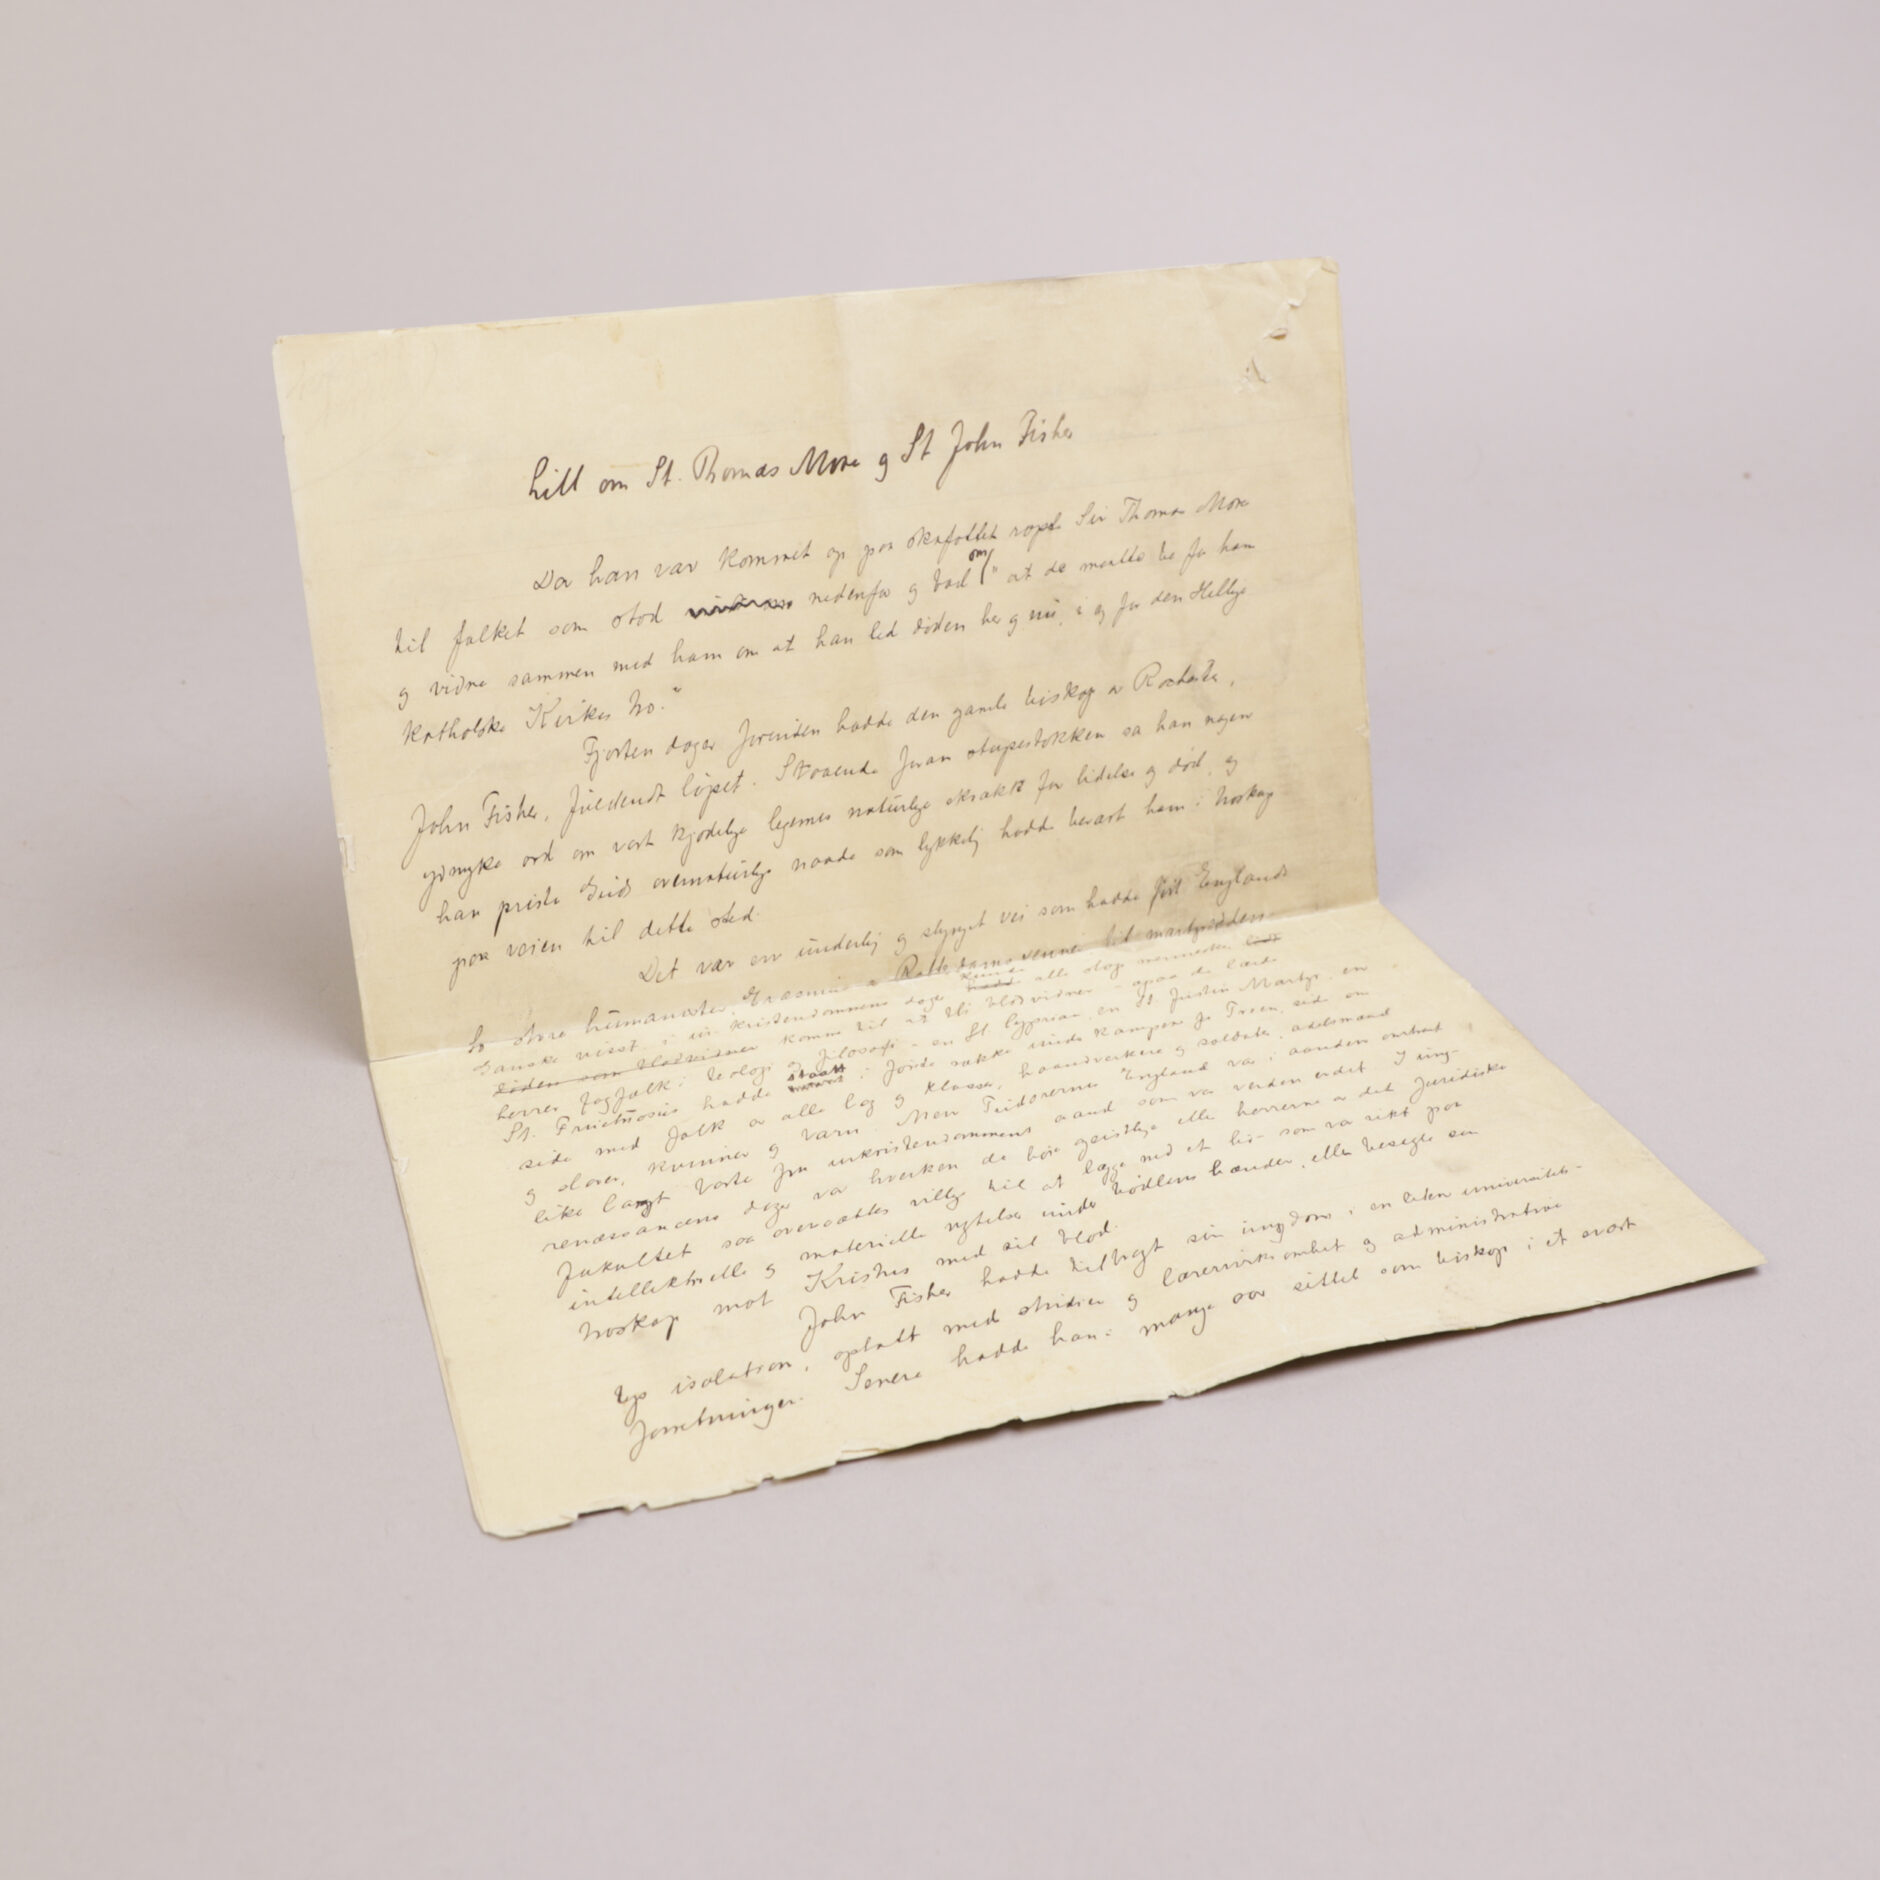 Litt om St. Thomas More og St John Fisher
Da han var kommet op paa skafottet ropte Sir Thomas More
til folket som stod nedenfor og bad om " at de maatte be for ham
og vidne sammen med ham om at han led døden her og nu, i og for den Hellige
katholske Kirkes tro."
Fjorten dager forinden hadde den gamle biskop av Rochester,
John Fisher, fuldendt løpet. Staaende foran stupestokken sa han nogen
ydmyke ord om vort kjødelige legemes naturlige skrækk for lidelse og død, og
han priste Guds overnaturlige naade som lykkelig hadde bevart ham i troskap
paa veien til dette sted.
Det var en underlig og slynget vei som hadde ført Englands
to store humanister, Erasmus av Rotterdams venner til martyrdøden.
Ganske visst, i urkristendommens dager kunde alle slags mennesker
komme til at bli blodvidner - ogsaa de lærde
herrer, fagfolk i teologi og filosofi - en St. Cyprian, en St. Justin Martyr, en
St. Fructuosus hadde staatt i første række under kampen for Troen, side om
side med folk av alle lag og klasser, haandverkere og soldater, adelsmænd
og slaver, kvinner og barn. Men Tudorernes England var i aanden omtrent
like langt borte fra urkristendommens aand som var verden er det. I ung-
renæssancens dager var hverken de høie geistlige eller herrerne av det juridiske
fakultet saa overvættes villige til at lægge ned et liv som var rikt paa
intellektuelle og materielle nytelser under bødlens hænder, eller besegle sin
troskap mot Kristus med sit blod.
John Fisher hadde tilbragt sin ungdom i en liten universitets-
bys isolation, optatt med studier og lærervirksomhet og administrative
forretninger. Senere hadde han i mange aar sittet som biskop i et svært